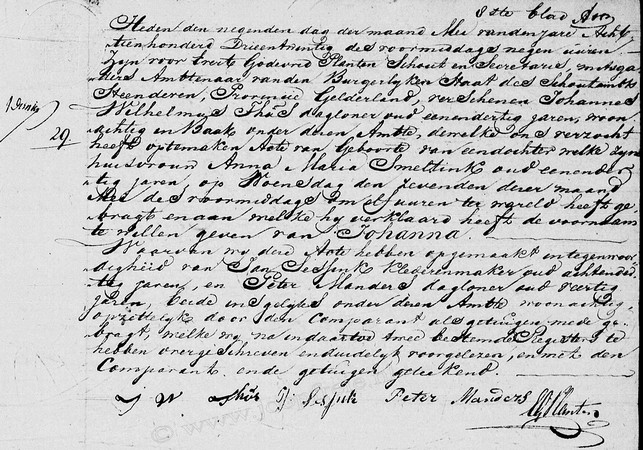 8ste blad
Heden den negenden dag der maand Mei van den jare Acht
tienhonderd Drieendertig des voormiddags negen uuren
zijn voor Evert Godevrid Planten Schout en Secretaris, mitsga
ders Ambtenaar van den Burgerlyken Staat des Schoutambts
Steenderen, Provincie Gelderland, verschenen Johannes
Wilhelmus Thüs dagloner oud eenendertig jaren, woon
29
achtig in Baak onder dezen Ambte, dewelke ons verzocht
heeft optemaken Acte van Geboorte van eendochter welke zyn
huisvrouw Anna Maria Smeltink oud eenender
tig jaren, op Woensdag den zevenden dezer maand
Mei des voormiddags om elf uuren ter wereld heeft ge
bragt en aan welke hy verklaard heeft de voornaam
te willen geven van Johanna.
Waarvan wy deze Acte hebben opgemaakt in tegenwoor
digheid van Jan Sesjink kleedermaker oud achtender
tig jaren, en Peter Manders dagloner oud veertig
jaren, beide insgelyks onder dezen Ambte woonachtig
opzettelyk door den Comparant als getuigen mede ge
bragt, welke wy na in daartoe twee bestemde Registers te
hebben overgeschreven en duidelyk voorgelezen, en met den
Comparant en de getuigen geteekend.
J W Thüs J: Sesjink Peter Manders Planten